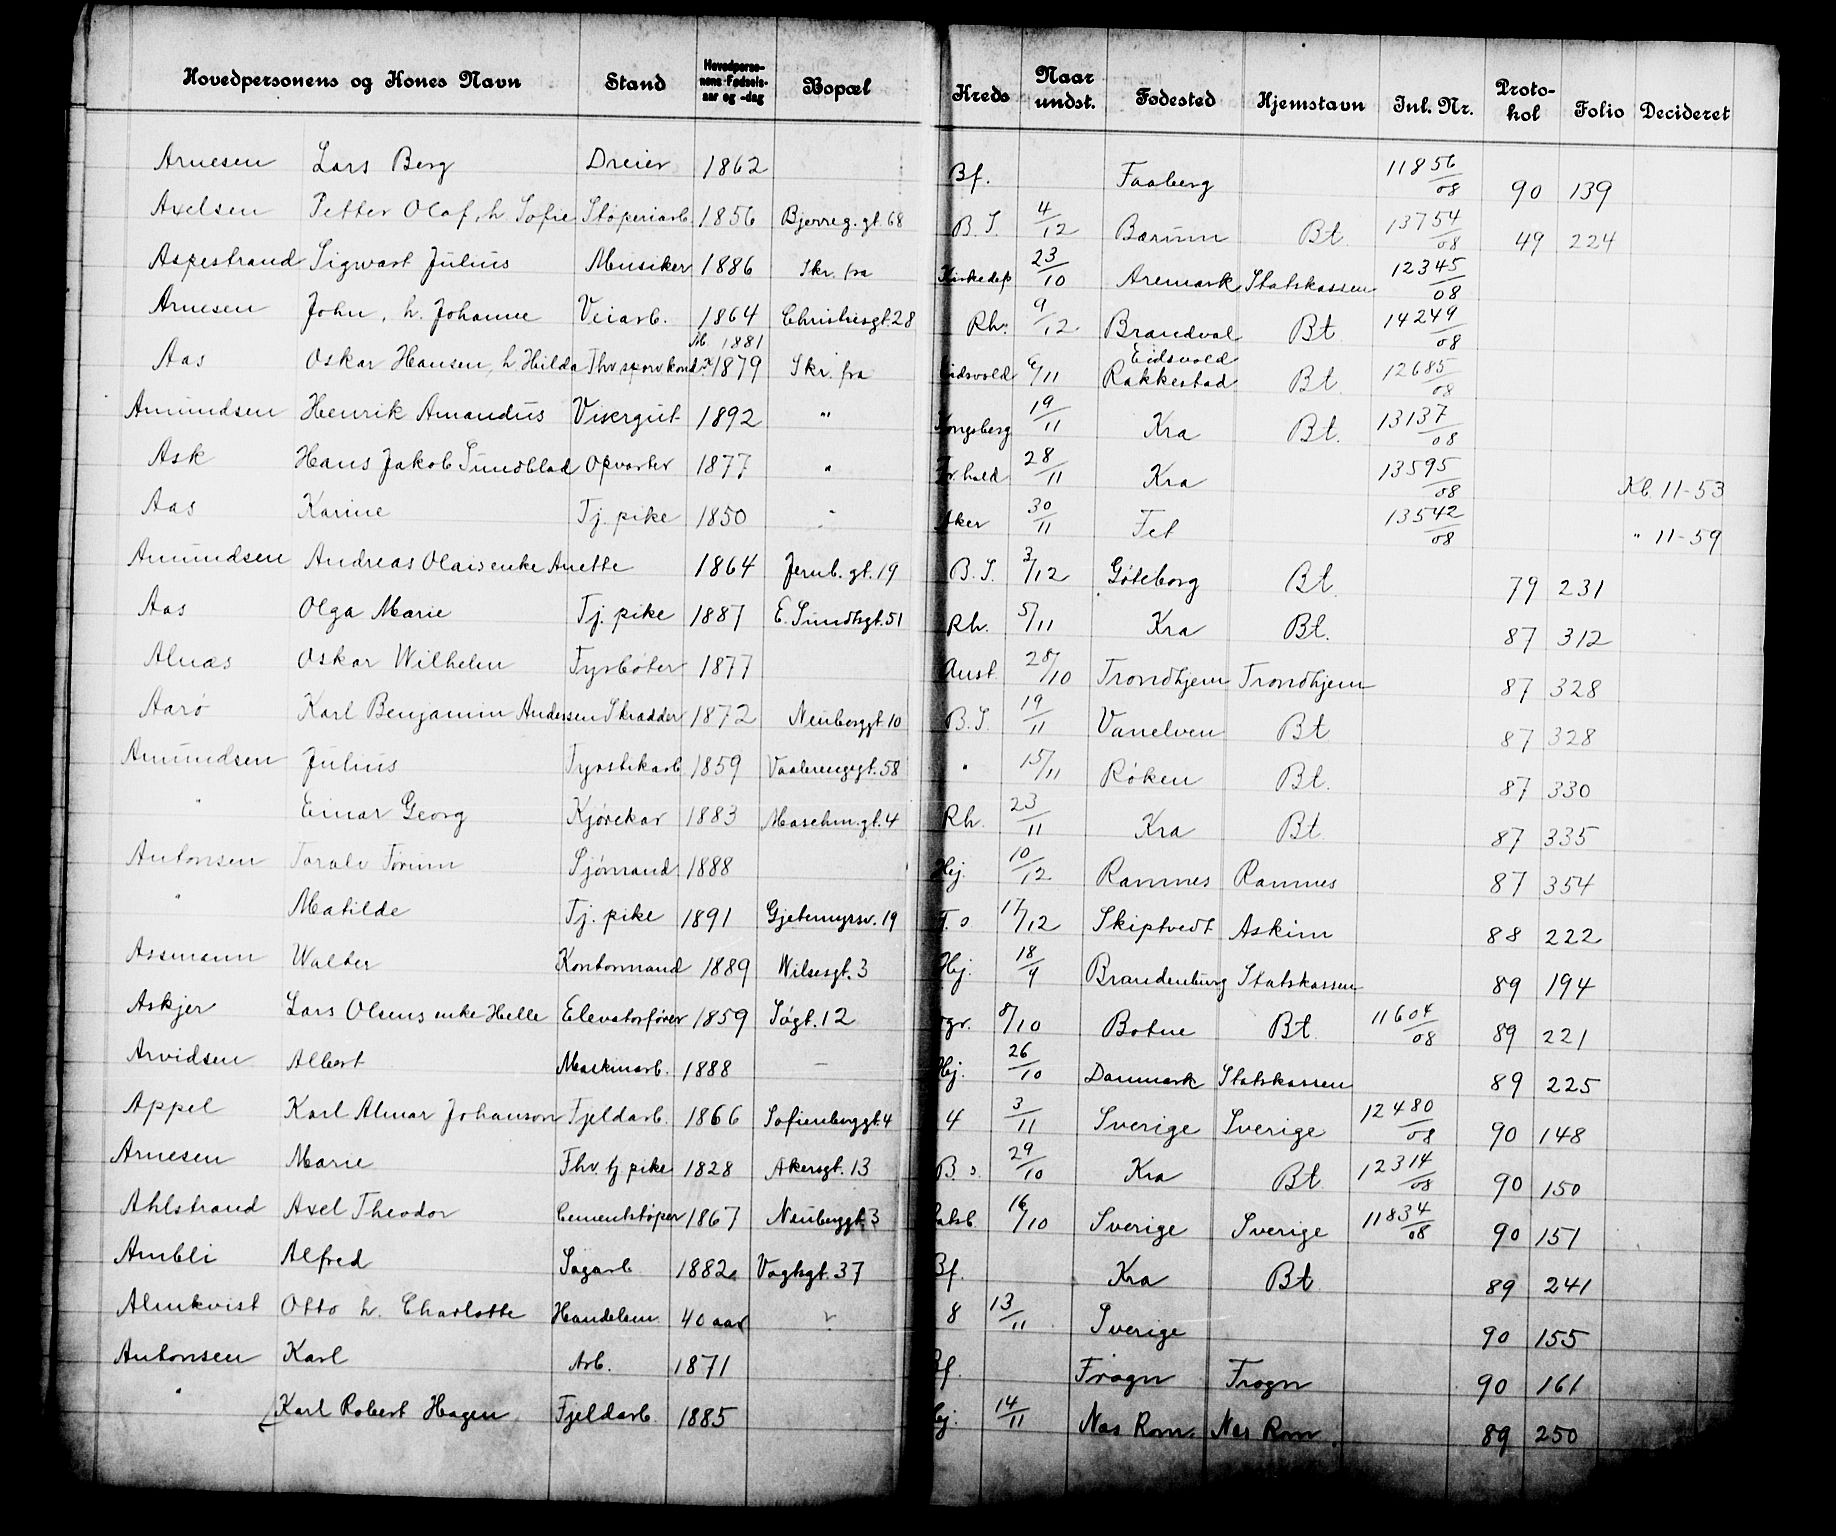 Hovedpersonens og Kones Navn | Stand | Hovedpersonens Fødselsaar og -dag | Bopæl | Kreds | Naar undst. | Fødested | Hjemstavn | Inl. Nr. | Protokol | Folio | Decideret
Arnesen Lars Berg Dreier 1862 Bf. Faaberg 11856/08 90 139
Axelsen Petter Olaf, h Sofie Støperiarb. 1856 Bjerreg. gt. 68 B. S. 4/12 Bærum Bt. 13754/08 49 224
Aspestrand Sigwart Julius Musiker 1886 Skr. fra Kirkedep 23/10 Aremark Statskassen 12345/08
Arnesen John, h. Johanne Veiarb. 1864 Christiesgt. 28 Rh. 9/12 Brandval Bt 14249/08
Aas Oskar Hansen, h Hilda Fhv sporv kond. 1881 1879 Skr. fra Eidsvold 6/11 Eidsvold Rakkestad Bt 12685/08
Amundsen Henrik Amandus Visergut 1892 " Kongsberg 19/11 Kra Bt. 13137/08
Ask Hans Jakob Sundblad Opvarter 1877 " Fr. hald 28/11 Kra 13595/08 Kl. 11-53
Aas Karine Tj. pike 1850 " Aker 30/11 Fet 13542/08 " 11-59
Amundsen Andreas Olais enke Anette 1864 Jernb. gt. 19 B. S. 3/12 Gøteborg Bt. 79 231
Aas Olga Marie Tj. pike 1887 E. Sundtsgt. 51 Rh. 5/11 Kra Bt. 87 312
Alnæs Oskar Wilhelm Fyrbøter 1877 Aust. 28/10 Trondhjem Trondhjem 87 328
Aarø Karl Benjamin Andersen Skrædder 1872 Neuberggt. 10 B. S. 19/11 Vanelven Bt 87 328
Amundsen Julius Fyrstikarb 1859 Vaalerenggt. 58 " 15/11 Røken Bt. 87 330
" Einar Georg Kjørekar 1883 Maschm. gt. 4 Rh. 23/11 Kra Bt. 87 335
Antonsen Toralv Tørum Sjømand 1888 Hej. 10/12 Ramnes Ramnes 87 354
" Matilde Tj. pike 1891 Gjetemyrsv. 19 T. o 17/12 Skiptvedt Askim 88 222
Assmann Walter Kontormand 1889 Wilsesgt. 3 Hej. 18/9 Brandenburg Statskassen 89 194
Askjer Lars Olsens enke Helle Elevatorfører 1859 Søgt. 12 gr. 8/10 Botne Bt. 11604/08 89 221
Arvidsen Albert Maskinarb. 1888 — Hej. 26/10 Danmark Statskassen 89 225
Appel Karl Almar Johanson Fjeldarb. 1866 Sofienberggt. 4 4 3/11 Sverige Sverige 12480/08 90 148
Arnesen Marie Fhv. tj pike 1828 Akersgt. 13 B. s. 29/10 Kra Bt. 12314/08 90 150
Ahlstrand Axel Theodor Cementstøper 1867 Neuberggt. 3 16/10 Sverige Sverige 11834/08 90 151
Ambli Alfred Sagarb. 1882 Vogtsgt. 37 Bf. Kra Bt 89 241
Almkvist Otto h. Charlotte Handelsm. 40 aar 8 13/11 Sverige 90 155
Antonsen Karl Arb. 1871 Bf. Frogn Frogn 90 161
" Karl Robert Hagen Fjeldarb. 1885 Hej. 14/11 Nas Rom. Nes Rom. 89 250